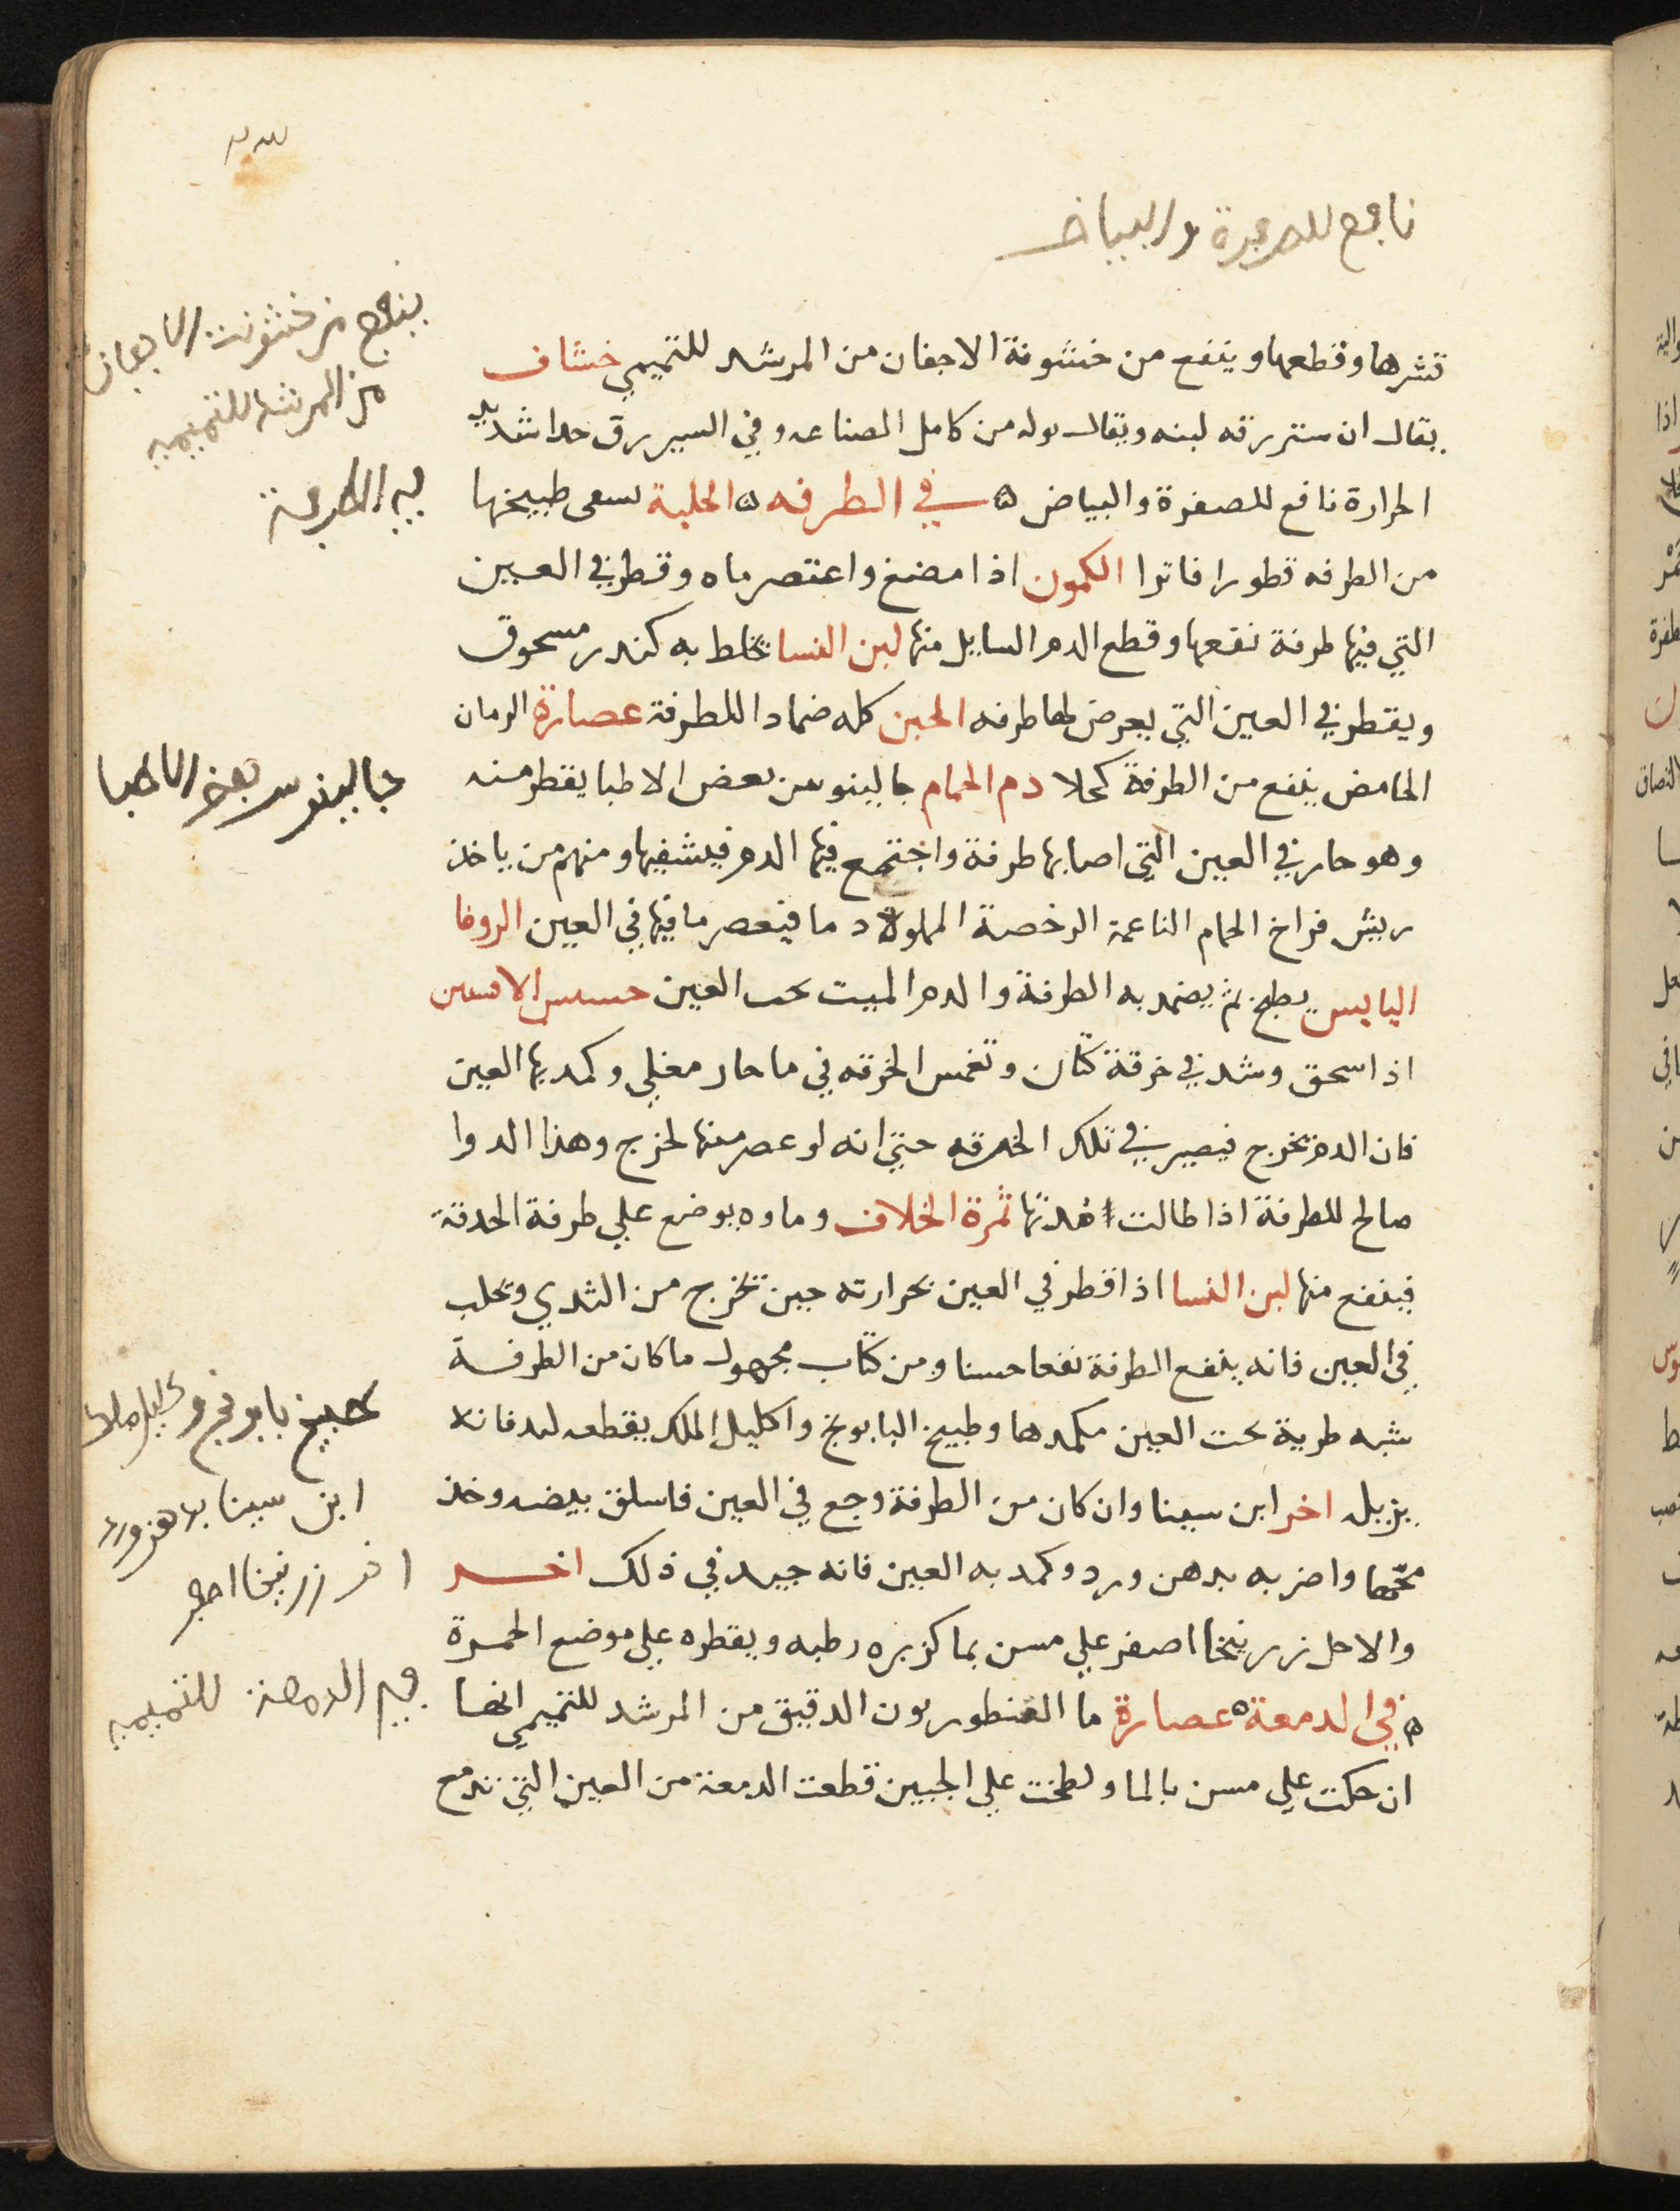 نافع للصفرة والبياض
قشرها وقطعها وينفع من خشونة الاجفان من المرشد للتميمي خشاف
يقال ان سترزقه لبنه ويقال بوله من كامل الصناعه وفي السير رق حدا شديد
الحرارة نافع للصفرة والبياض ه في الطرفه ه الحلبة سعى طبيخها
من الطرفه قطورا فاترا الكمون اذا مضغ واعتصر ماه وقطر في العين
التي فيها طرفة نفعها وقطع الدم السايل منها لبن النسا يخلط به كندر مسحوق
ويقطر في العين التي يعرض لها طرفه الجبن كله ضمادا للطرفة عصارة الرمان
الحامض ينفع من الطرفة كحلا دم الحمام جالينوس بعض الاطبا يقطر منه
وهو حار في العين التي اصابها طرفة واجتمع فيها الدم فيشفيها ومنهم من ياخذ
ريش فراخ الحمام الناعمة الرخصة المملوة دما فيعصر ما فيها في العين الزوفا
اليابس يطبخ ثم يضمد به الطرفة والدم الميت تحت العين حسس الافسين
اذا سحق وشد في خرقة كتان وتغمس الخرقه في ما حار مغلي وكمد بها العين
فان الدم يخرج فيصير في تلك الخرقه حتي انه لو عصر منها لخرج وهذا الدوا
صالح للطرفة اذا طالت مدتها ثمرة الخلاف وماوه يوضع علي طرفة الحدقة
فينفع منها لبن النسا اذا قطر في العين بحرارته حين تخرج من الثدي وتحلب
في العين فانه ينفع الطرفة نفعا حسنا ومن كتاب مجهول ما كان من الطرفة
شبه طرية تحت العين مكمدها وطبيخ البابونج واكليل الملك يقطعه لبد فانه
يزيله اخر ابن سينا وان كان من الطرفة وجع في العين فاسلق بيضه وخذ
محها واضربه بدهن ورد وكمد به العين فانه جيد في ذلك اخر
والاحل زرنيخا اصفر علي مسن بما كزبره رطبه ويقطره علي موضع الحمرة
ه في الدمعة ه عصارة ما القنطوريون الدقيق من المرشد للتميمي انها
ان حكت علي مسن بالما ولطخت علي الجبين قطعت الدمعة من العين التي تدمع
ينفع من خشونت الاجفان
من المرشد للتميمي
في الطرفة
جالينوس بعض الاطبا
طبيخ بابونج و كليل ملك
ابن سينا بدهن ورد
اخر زرنيخا اصفر
في الدمعة للتميمي